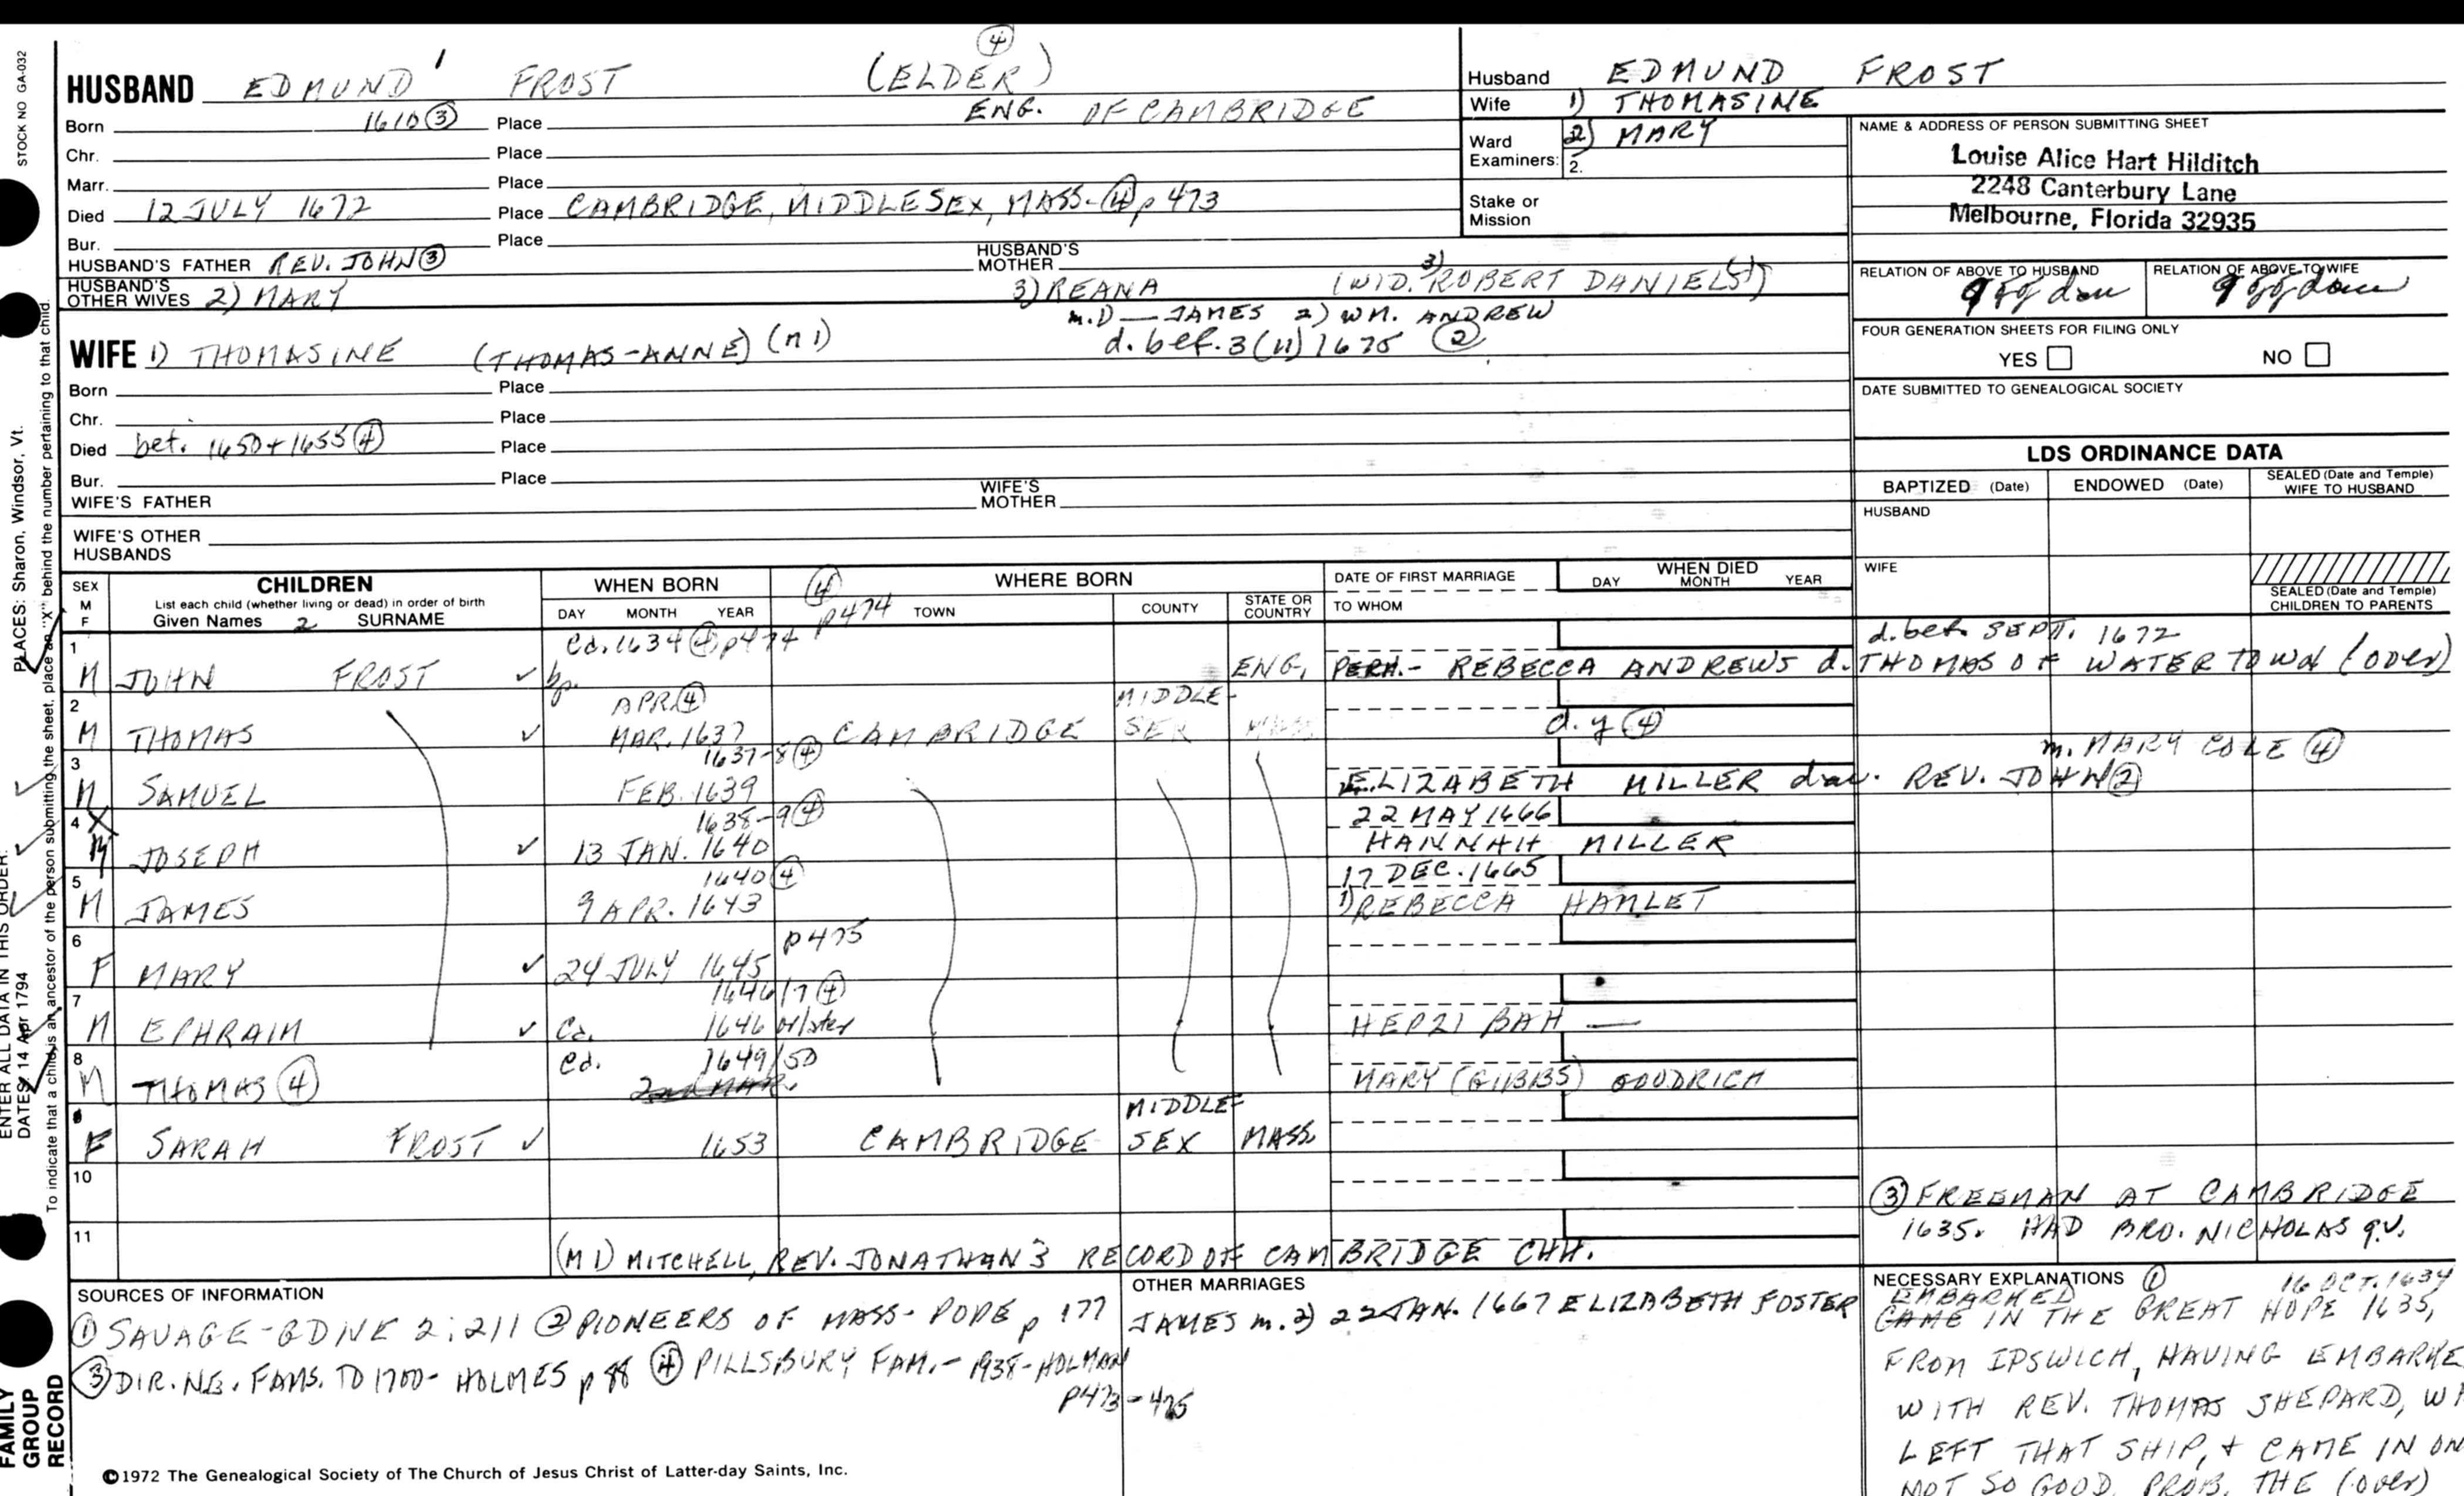 STOCK NO GA-032
PLACES: Sharon, Windsor, Vt.
ENTER ALL DATA IN THIS ORDER:
DATES: 14 Apr 1794
To indicate that a child is an ancestor of the person submitting the sheet, place an "X" behind the number pertaining to that child.
FAMILY
GROUP
RECORD
④
HUSBAND EDMUND 1 FROST (ELDER)
Born 1610 ③ Place ENG. OF CAMBRIDGE
Chr. Place
Marr. Place
Died 12 JULY 1672 Place CAMBRIDGE, MIDDLESEX, MASS- ④ p 473
Bur. Place
HUSBAND'S FATHER REV. JOHN ③ HUSBAND'S MOTHER
HUSBAND'S OTHER WIVES 2) MARY 3) REANA (WID. ROBERT DANIELS)
m. 1) — JAMES 2) WM. ANDREW 3)
d. bef. 3 (11) 1675 ②
WIFE 1) THOMASINE (THOMAS-ANNE) (M 1)
Born Place
Chr. Place
Died bet. 1650 + 1655 ④ Place
Bur. Place
WIFE'S FATHER WIFE'S MOTHER
WIFE'S OTHER HUSBANDS
Husband EDMUND FROST
Wife 1) THOMASINE
Ward Examiners: 2) MARY
2.
Stake or Mission
NAME & ADDRESS OF PERSON SUBMITTING SHEET
Louise Alice Hart Hilditch
2248 Canterbury Lane
Melbourne, Florida 32935
RELATION OF ABOVE TO HUSBAND RELATION OF ABOVE TO WIFE
9 ggdau 9 ggdau
FOUR GENERATION SHEETS FOR FILING ONLY
YES NO
DATE SUBMITTED TO GENEALOGICAL SOCIETY
LDS ORDINANCE DATA
BAPTIZED (Date) ENDOWED (Date) SEALED (Date and Temple) WIFE TO HUSBAND
HUSBAND
WIFE
SEALED (Date and Temple) CHILDREN TO PARENTS
SEX M F CHILDREN WHEN BORN WHERE BORN DATE OF FIRST MARRIAGE WHEN DIED
List each child (whether living or dead) in order of birth
Given Names 2 SURNAME DAY MONTH YEAR ④ p474 TOWN COUNTY STATE OR COUNTRY TO WHOM DAY MONTH YEAR
1 ca. 1634 ④ p474 d. bef. SEPT. 1672
M JOHN FROST ✓ bp. ENG. PERH.- REBECCA ANDREWS d. THOMAS OF WATERTOWN (over)
2 APR ④ MIDDLE-
M THOMAS ✓ MAR. 1637 CAMBRIDGE SEX MASS. d. y ④
3 1637-8 ④ m. MARY COLE ④
M SAMUEL FEB. 1639 ELIZABETH MILLER dau. REV. JOHN ②
4 X 1638-9 ④ 22 MAY 1666
M JOSEPH ✓ 13 JAN. 1640 HANNAH MILLER
5 1640 ④ 17 DEC. 1665
M JAMES 9 APR. 1643 1) REBECCA HAMLET
6 p475
F MARY ✓ 24 JULY 1645
7 1646/7 ④
M EPHRAIM ✓ ca. 1646 or later HEPZIBAH —
8 ca. 1649/50
M THOMAS ④ 2nd MAR. MARY (GIBBS) GOODRICH
MIDDLE-
F SARAH FROST ✓ 1653 CAMBRIDGE SEX MASS.
10
11
(M 1) MITCHELL, REV. JONATHAN'S RECORD OF CAMBRIDGE CHH.
③ FREEMAN AT CAMBRIDGE
1635. HAD BRO. NICHOLAS q.v.
SOURCES OF INFORMATION
① SAVAGE-GDNE 2:211 ② PIONEERS OF MASS- POPE p 177
③ DIR. NE. FAMS. TO 1700- HOLMES p 88 ④ PILLSBURY FAM.- 1938- HOLMAN
p473-475
OTHER MARRIAGES
JAMES m. 2) 22 JAN. 1667 ELIZABETH FOSTER
NECESSARY EXPLANATIONS ① 16 OCT. 1634
EMBARKED
CAME IN THE GREAT HOPE 1635,
FROM IPSWICH, HAVING EMBARKE
WITH REV. THOMAS SHEPARD, WH
LEFT THAT SHIP, + CAME IN ON
NOT SO GOOD, PROB. THE (over)
©1972 The Genealogical Society of The Church of Jesus Christ of Latter-day Saints, Inc.